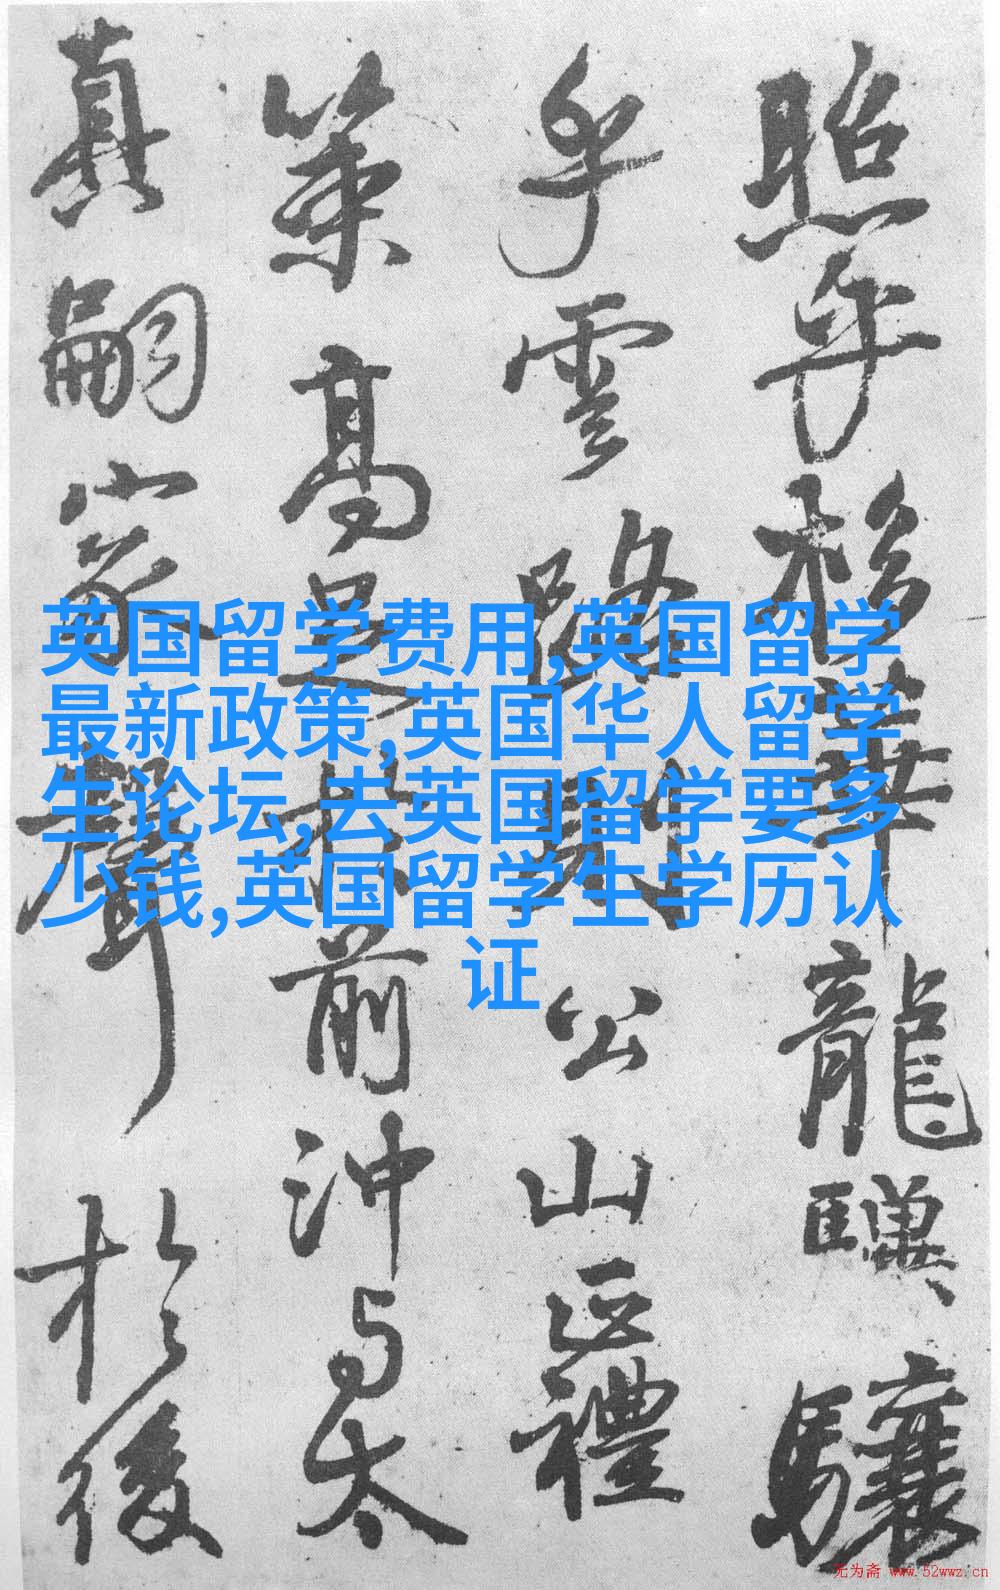 照乎栘華龍驥驤
乎雲路則公山正禮
策高足於前沖与太
真嗣家聲於後
英国留学费用,英国留学
最新政策,英国华人留学
生论坛,去英国留学要多
少钱,英国留学生学历认
证
无为斋 www.52wwz.cn